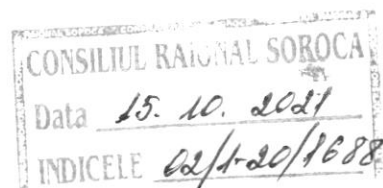 CONSILIUL RAIONAL SOROCA
Data 15. 10. 2021
INDICELE 02/1-20/1688